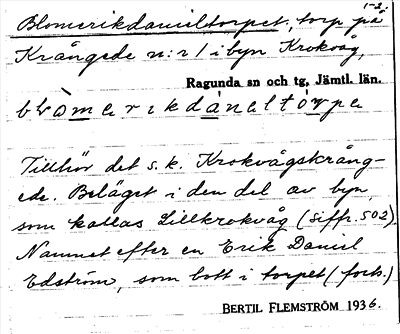 1-2.
Blomerikdanieltorpet, torp på
Krångede n:r 1 i byn Krokvåg,
Ragunda sn och tg, Jämtl. län.
blòmerikdáneltòrpe
Tillhör det s.k. Krokvågskrång-
ede. Beläget i den del av byn,
som kallas Lillkrokvåg (siffr. 502).
Namnet efter en Erik Daniel
Edström, som bott i torpet (forts.)
BERTIL FLEMSTRÖM 1936.